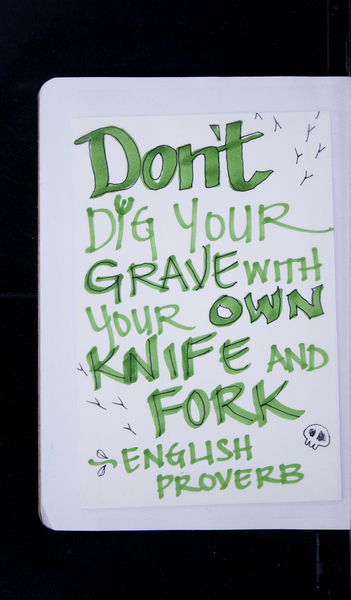 Don't
DIG YOUR
GRAVE WITH
YOUR OWN
KNIFE AND
FORK
ENGLISH
PROVERB